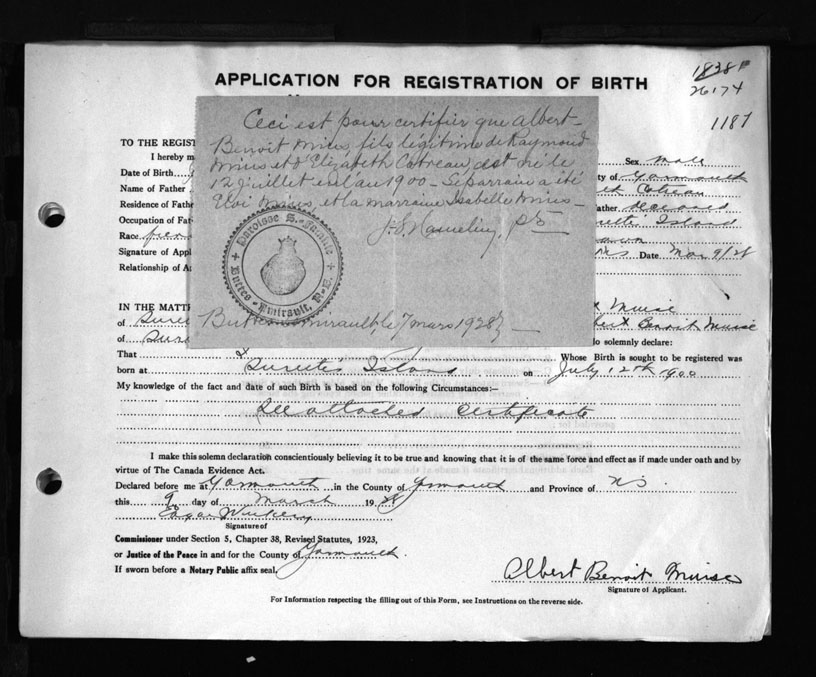 APPLICATION FOR REGISTRATION OF BIRTH
1838
26174
1187
TO THE REGIST
I hereby m
Sex male
Date of Birth
ty of Yarmouth
Name of Father
Coteau
Residence of Fathe
ather deceased
Occupation of Fat
Island
Race
Signature of Appli
NS Date Mar 9/28
Relationship of A
Ceci est pour certifier que Albert-
Benoit Mius fils légitime de Raymond
Mius et d'Elizabeth Cotreau est né le
12 juillet en l'an 1900 - Le parrain a été
Eloi Mius et la marraine Isabelle Mius -
Paroisse S.-
Buttes-Amirault, N.E.
Buttes Amirault, le 7 mars 1928 -
IN THE MATT
Muise
of
Albert Benoit Muise
of
do solemnly declare:
That I
Whose Birth is sought to be registered was
born at Surette's Island on July 12th 1900
My knowledge of the fact and date of such Birth is based on the following Circumstances:—
See attached Certificate
I make this solemn declaration conscientiously believing it to be true and knowing that it is of the same force and effect as if made under oath and by
virtue of The Canada Evidence Act.
Declared before me at Yarmouth in the County of Yarmouth and Province of NS.
this 9 day of March 1928
Edgar
Signature of
Commissioner under Section 5, Chapter 38, Revised Statutes, 1923,
or Justice of the Peace in and for the County of Yarmouth.
If sworn before a Notary Public affix seal.
Albert Benoit Muise
Signature of Applicant.
For Information respecting the filling out of this Form, see Instructions on the reverse side.